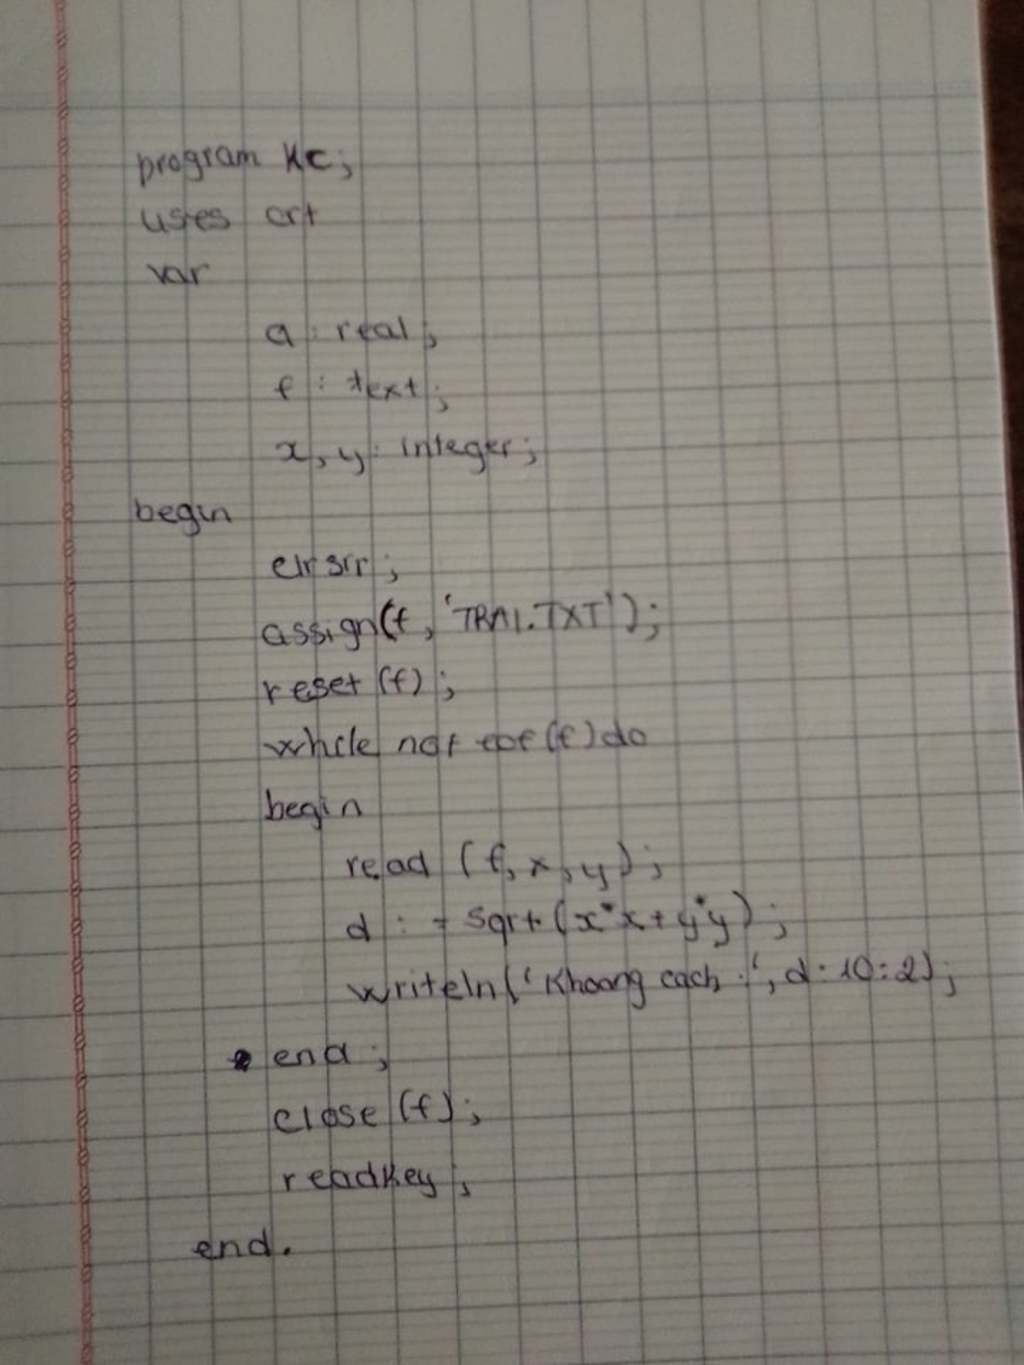 program KC;
uses crt
var
a : real;
f : text;
x, y : integer;
begin
clrsrr;
assign(f, 'TRAI.TXT');
reset (f);
while not eof(f) do
begin
read (f, x, y);
d := sqrt (x*x + y*y);
writeln('Khoang cach :', d:10:2);
end;
close (f);
readkey;
end.